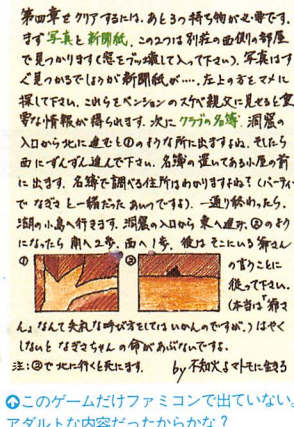 第四章をクリアするには、あと3つ持ち物が必要です。
まず写真と新聞紙。この2つは別荘の西側の部屋
で見つかります(窓をブッ壊して入って下さい)。写真はす
ぐ見つかるでしょうが新聞紙が…。左上の方をマメに
探して下さい。これらをペンションのスケベ親父に見せると重
要な情報が得られます。次にクラブの名簿。洞窟の
入口から北に進むと①のような所に出ますよね。そしたら
西にずんずん進んで下さい。名簿の置いてある小屋の前
に出ます。名簿で調べる住所はわかりますよね?(パーティー
でなぎさと一緒だったあいつです)。一通り終わったら、
湖の小島へ行きます。洞窟の入口から東へ進み、②のよう
になったら南へ2歩、西へ1歩。後はそこにいる爺さん
①
②
の言うことに
従って下さい。
(本当は「爺さ
ん」なんて失礼な呼び方をしてはいかんのですが。)はやく
しないとなぎさちゃんの命があぶないですね。
注:②で北に行くと死にます。
by 不知火よマトモに生きろ
このゲームだけファミコンで出ていない。
アダルトな内容だったからかな?